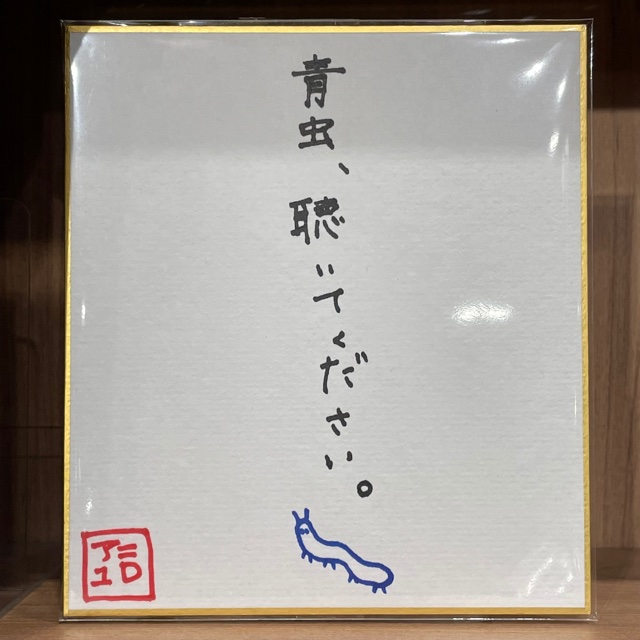 青虫、聴いてください。
アニ
ユロ